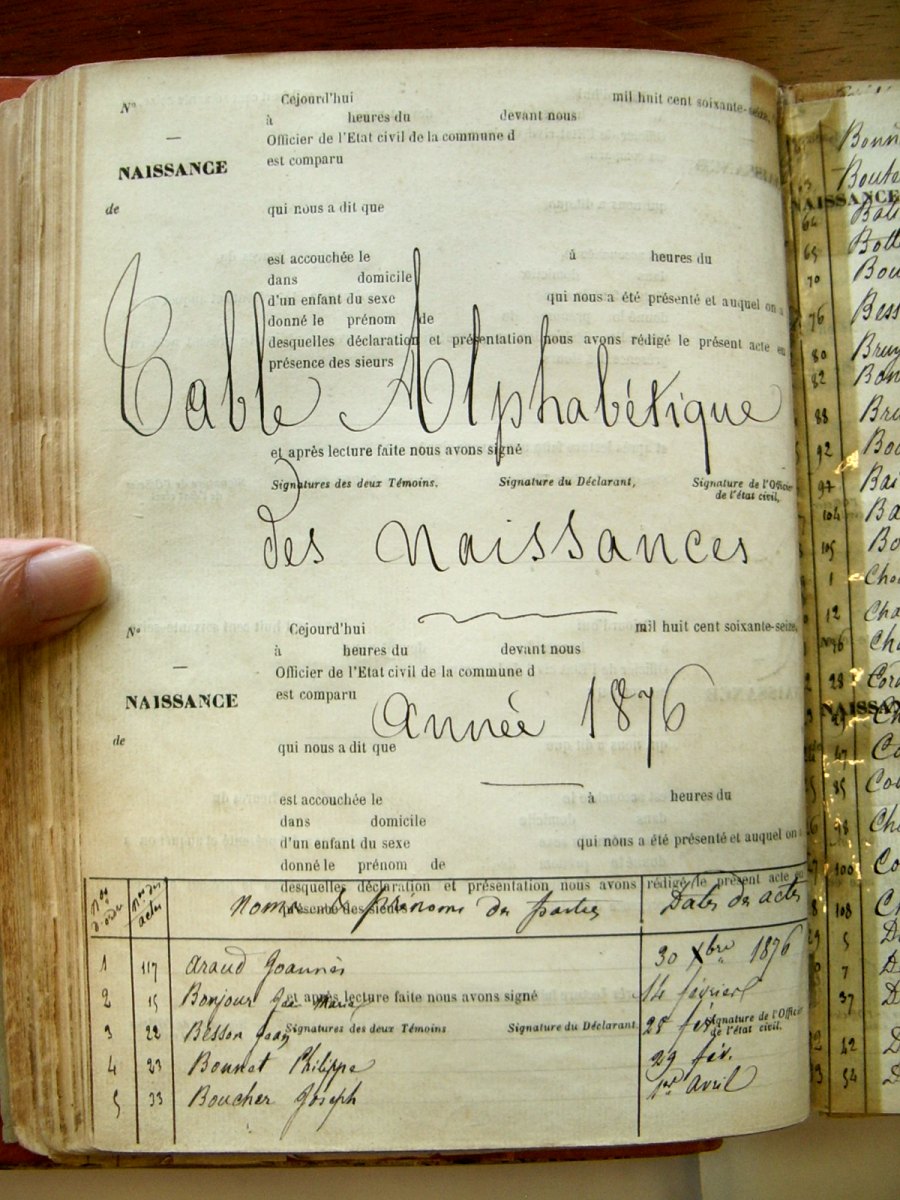 N° Cejourd'hui mil huit cent soixante-seize,
à heures du devant nous
Officier de l'Etat civil de la commune d
NAISSANCE est comparu
de qui nous a dit que
est accouchée le à heures du
dans domicile
d'un enfant du sexe qui nous a été présenté et auquel on a
donné le prénom de
desquelles déclaration et présentation nous avons rédigé le présent acte en
présence des sieurs
Table Alphabétique
et après lecture faite nous avons signé
Signatures des deux Témoins. Signature du Déclarant, Signature de l'Officier
de l'état civil,
des Naissances
N° Cejourd'hui mil huit cent soixante-seize,
à heures du devant nous
Officier de l'Etat civil de la commune d
NAISSANCE est comparu
Année 1876
de qui nous a dit que
est accouchée le à heures du
dans domicile
d'un enfant du sexe qui nous a été présenté et auquel on
donné le prénom de
desquelles déclaration et présentation nous avons rédigé le présent acte en
présence des sieurs
Nos d'ordre Nos des actes Noms & prénoms des parties Dates des actes
1 117 Araud Joannès 30 Xbre 1876
et après lecture faite nous avons signé
2 15 Bonjour Marie 14 février
Signatures des deux Témoins Signature du Déclarant. Signature de l'Officier
de l'état civil.
3 22 Besson 28 fév.
4 23 Bonnet Philippe 29 fév.
5 33 Boucher Joseph 1er avril
NAISSANCE
64
65
70
76
80
82
88
92
104
105
1
12
28
47
85
98
100
108
5
7
37
42
54